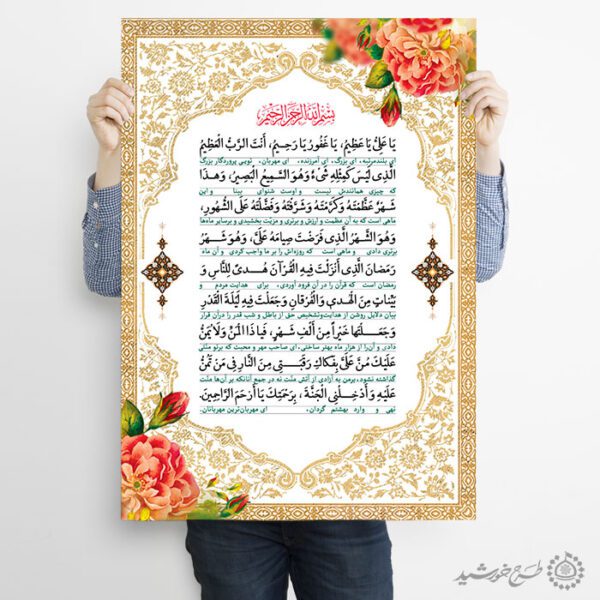 بِسْمِ اللهِ الرَّحْمنِ الرَّحِيمِ
يَا عَلِيُّ يَا عَظِيمُ، يَا غَفُورُ يَا رَحِيمُ، أَنْتَ الرَّبُّ الْعَظِيمُ
ای بلندمرتبه، ای بزرگ، ای آمرزنده، ای مهربان، تویی پروردگار بزرگ
الَّذِي لَيْسَ كَمِثْلِهِ شَيْءٌ وَهُوَ السَّمِيعُ الْبَصِيرُ، وَهٰذَا
که چیزی همانندش نیست و اوست شنوای بینا و این
شَهْرٌ عَظَّمْتَهُ وَكَرَّمْتَهُ وَشَرَّفْتَهُ وَفَضَّلْتَهُ عَلَى الشُّهُورِ،
ماهی است که به آن عظمت و ارزش و برتری و مزیّت بخشیدی و برسایر ماه‌ها
وَهُوَ الشَّهْرُ الَّذِي فَرَضْتَ صِيَامَهُ عَلَيَّ، وَهُوَ شَهْرُ
برتری دادی و ماهی است که روزه‌اش را بر ما واجب کردی و آن ماه
رَمَضَانَ الَّذِي أَنْزَلْتَ فِيهِ الْقُرْآنَ هُدىً لِلنَّاسِ وَ
رمضان است که قرآن را در آن فرود آوردی، برای هدایت مردم و
بَيِّنَاتٍ مِنَ الْهُدىٰ وَالْفُرْقَانِ وَجَعَلْتَ فِيهِ لَيْلَةَ الْقَدْرِ
بیان دلایل روشن از هدایت‌وتشخیص حق از باطل و شب قدر را درآن قرار
وَجَعَلْتَهَا خَيْراً مِنْ أَلْفِ شَهْرٍ، فَيَا ذَا الْمَنِّ وَلَا يُمَنُّ
دادی و آن‌را از هزار ماه بهتر ساختی، ای صاحب مهر و محبت که برتو منتی
عَلَيْكَ مُنَّ عَلَيَّ بِفَكَاكِ رَقَبَتِي مِنَ النَّارِ فِي مَنْ تَمُنُّ
گذاشته نشود، برمن به آزادی از آتش منّت نه در جمع آنانکه بر آن‌ها منّت
عَلَيْهِ وَأَدْخِلْنِي الْجَنَّةَ، بِرَحْمَتِكَ يَا أَرْحَمَ الرَّاحِمِينَ.
نهی و وارد بهشتم گردان، ای مهربان‌ترین مهربانان.
طرح خورشید